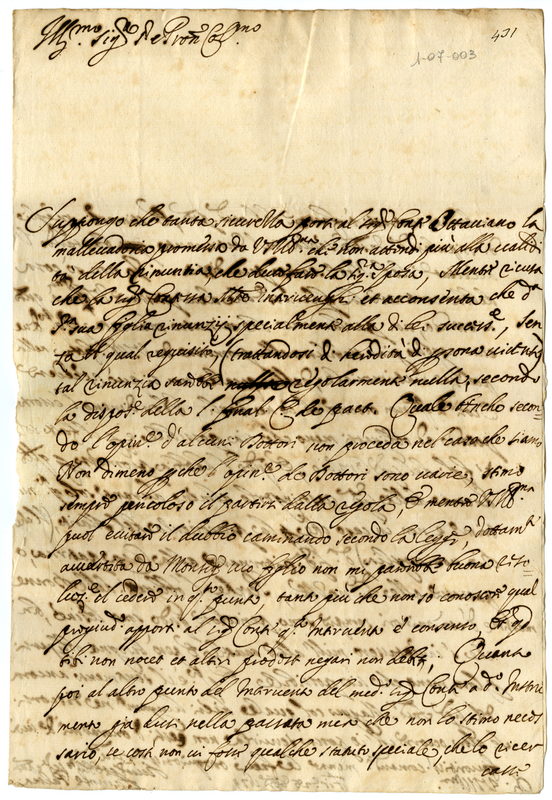 Ill.mo Sig.r e Pron Col.mo
431
1-07-003
Suppongo che tanta sicurezza porti al Sig.r Conte Ottaviano la
mallevadoria promessa da V.S. Ill.ma che non attendi più alla validi
tà della rinuntia che deve fare la Sig.ra Sposa, mentre ricusa
che la Sig.ra Contessa intervenghi et acconsenta che d.a
S.ra sua figlia rinunzij specialmente alla di lei success.e, sen
za il qual requisito (trattandosi d'heredità di persona vivente)
tal rinunzia sarebbe regolarmente nulla, secondo
la dispos.e della l. de pact. Quale benche secon
do l'opin.e d'alcuni Dottori non proceda nel caso che siamo
Non dimeno perche l'opin.e de Dottori sono varie, stimo
sempre pericoloso il partirsi dalla regola, e mentre V.S. Ill.ma
puol evitare il dubbio caminando secondo la legge, dottam.te
avvertita da Monsig.r suo figlio non mi parrebbe buona riso
luz.e il cedere in q.to punto, tanto più che non so conoscere qual
pregiud.o apporti al Sig.r Conte q.to intervento e consenso, et q.d
tibi non nocet et alteri prodest negari non debet; Quanto
poi al altro punto del intervento del med.o Sig.r Conte a d.o Instru
mento già dissi nella passata mia che non lo stimo neces
sario, se costì non vi fosse qualche statuto speciale, che lo ricer
casse